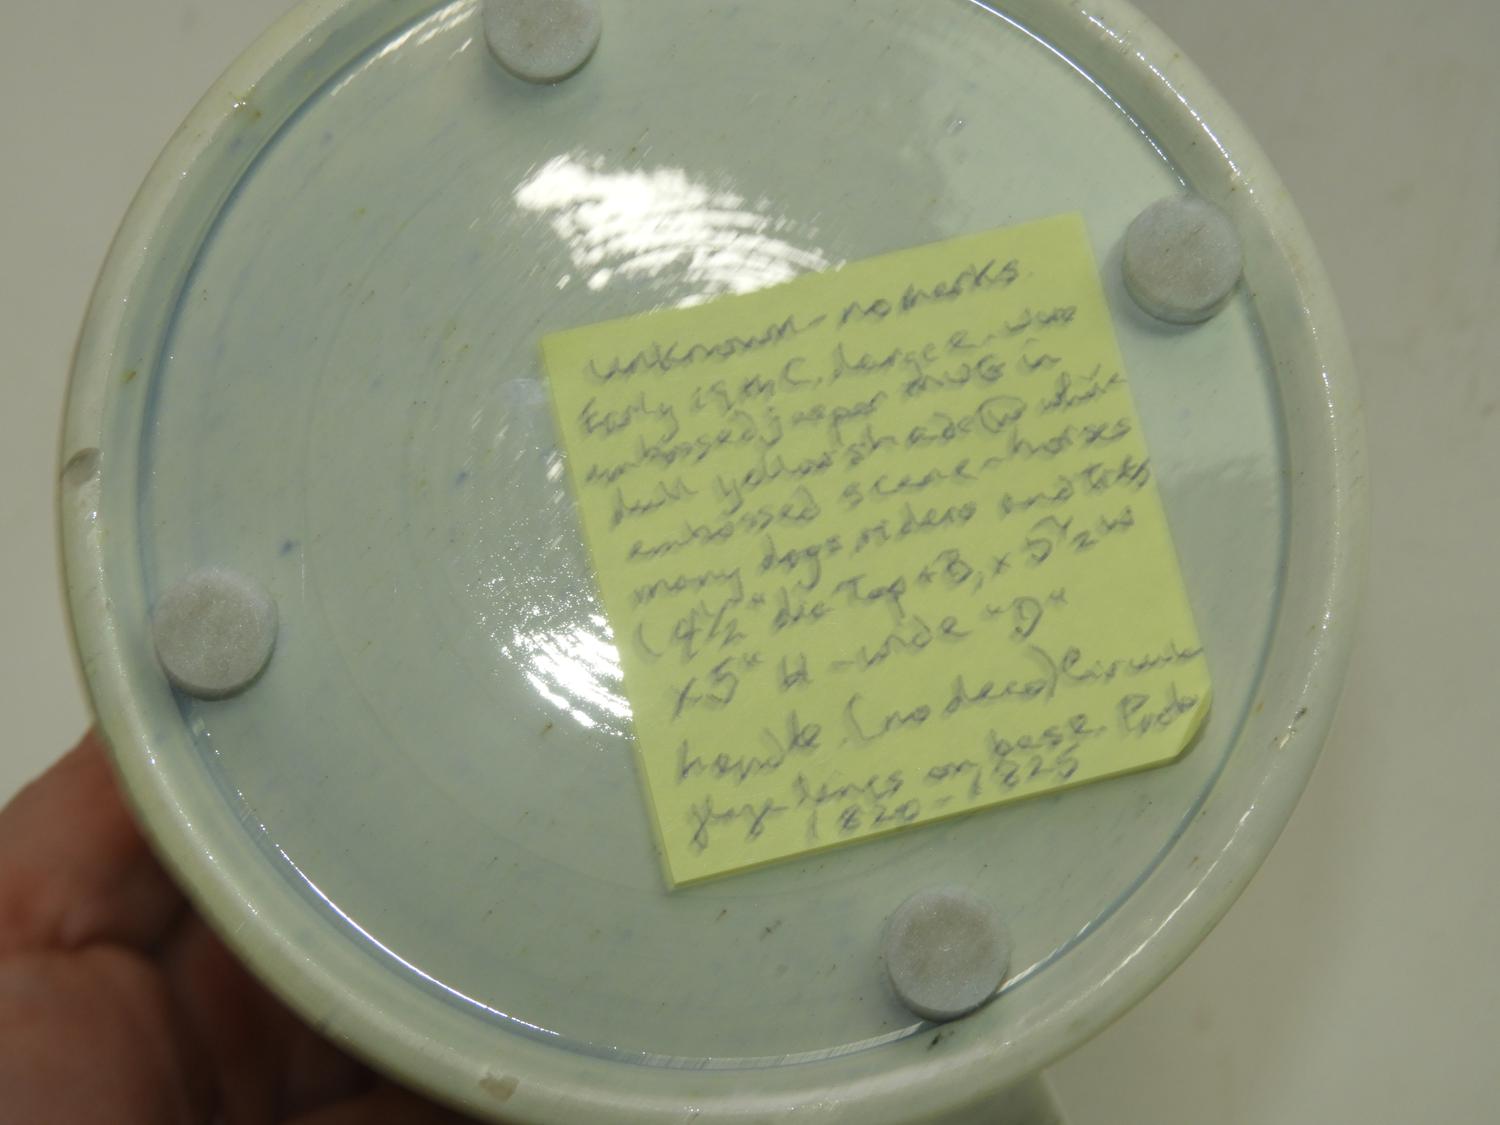 unknown - no marks
Early 19th C. large e-ware
embossed jasper MUG in
dull yellow shade (?) white
embossed scene - horses
many dogs, riders and
(4 1/2" dia Top + B, x 5 1/2 W
x 5" H - wide "D"
handle. (no deco) Circular
glaze on base. Prob
1820 - 1825